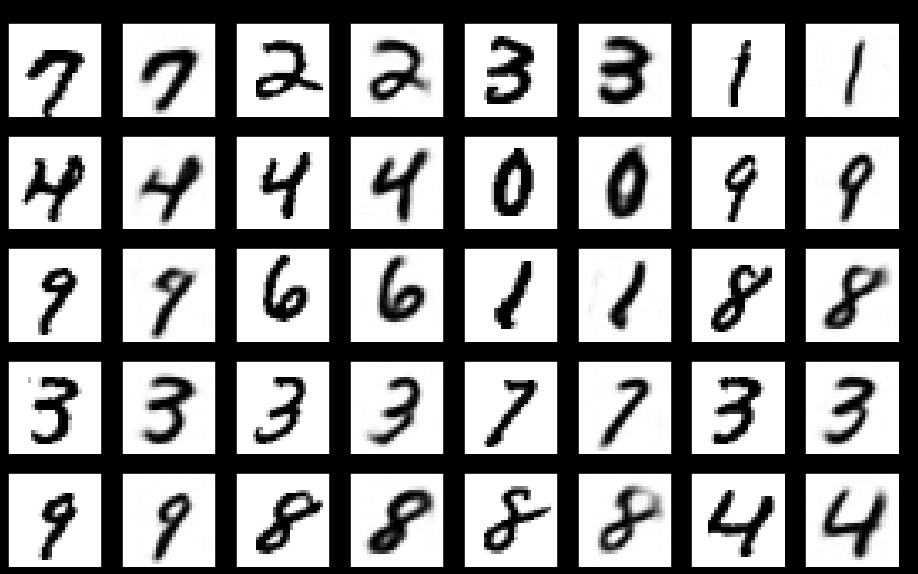 7 7 2 2 3 3 1 1
4 4 4 4 0 0 9 9
9 9 6 6 1 1 8 8
3 3 3 3 7 7 3 3
9 9 8 8 8 8 4 4